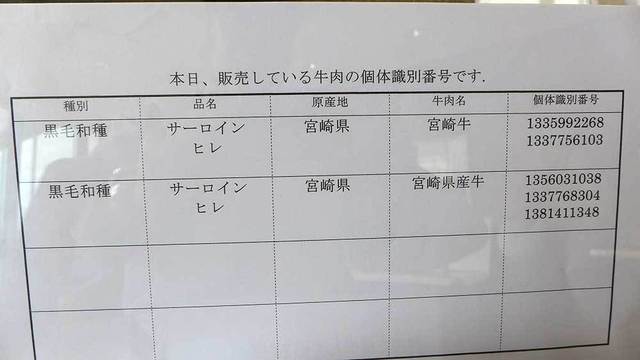 本日、販売している牛肉の個体識別番号です.
種別 品名 原産地 牛肉名 個体識別番号
黒毛和種 サーロイン 宮崎県 宮崎牛 1335992268
ヒレ 1337756103
黒毛和種 サーロイン 宮崎県 宮崎県産牛 1356031038
ヒレ 1337768304
1381411348